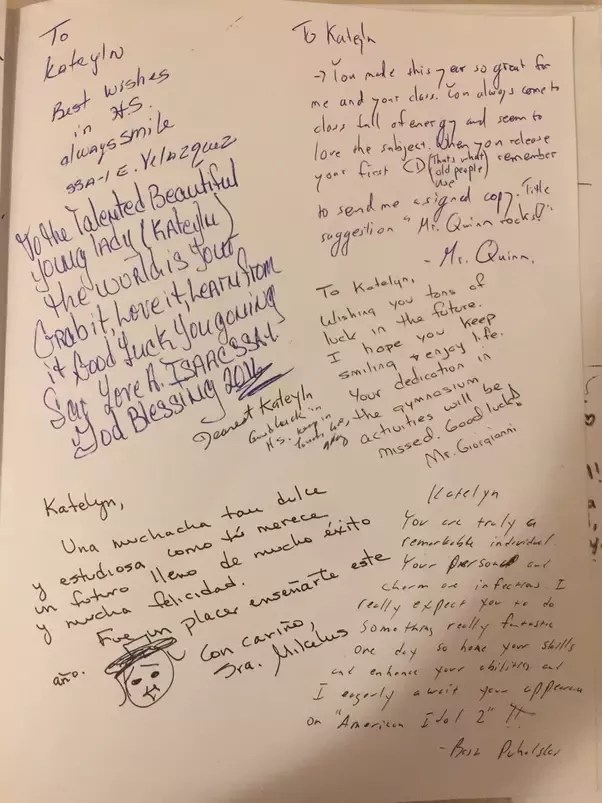 To
Kateyln
Best wishes
in H.S.
always smile
SSA-I E. Velazquez
To the Talented Beautiful
young lady (Kateyln)
the world is your
Grab it, Love it, Learn from
it Good Luck You going
Say Love R. ISAAC SSA-I
God Blessing 2016
To Katelyn
→ You made this year so great for
me and your class. You always come to
class full of energy and seem to
love the subject. When you release
your first CD (Thats what old people use) remember
to send me a signed copy. Title
suggestion "Mr. Quinn rocks!"
- Mr. Quinn.
To Katelyn,
Wishing you tons of
luck in the future.
I hope you keep
smiling & enjoy life.
Your dedication in
the gymnasium
activities will be
missed. Good luck!
Mr. Giorgianni
Dearest Kateyln
Good luck in
H.S. Keep in
touch
Katelyn,
Una muchacha tan dulce
y estudiosa como tú merece
un futuro lleno de mucho éxito
y mucha felicidad.
Fue un placer enseñarte este
año.
Con cariño,
Sra.
Katelyn
You are truly a
remarkable individual.
Your and
charm are infectious. I
really expect you to do
something really fantastic
one day so hone your skills
and enhance your abilities and
I eagerly await your appearance
on "American Idol 2" !!